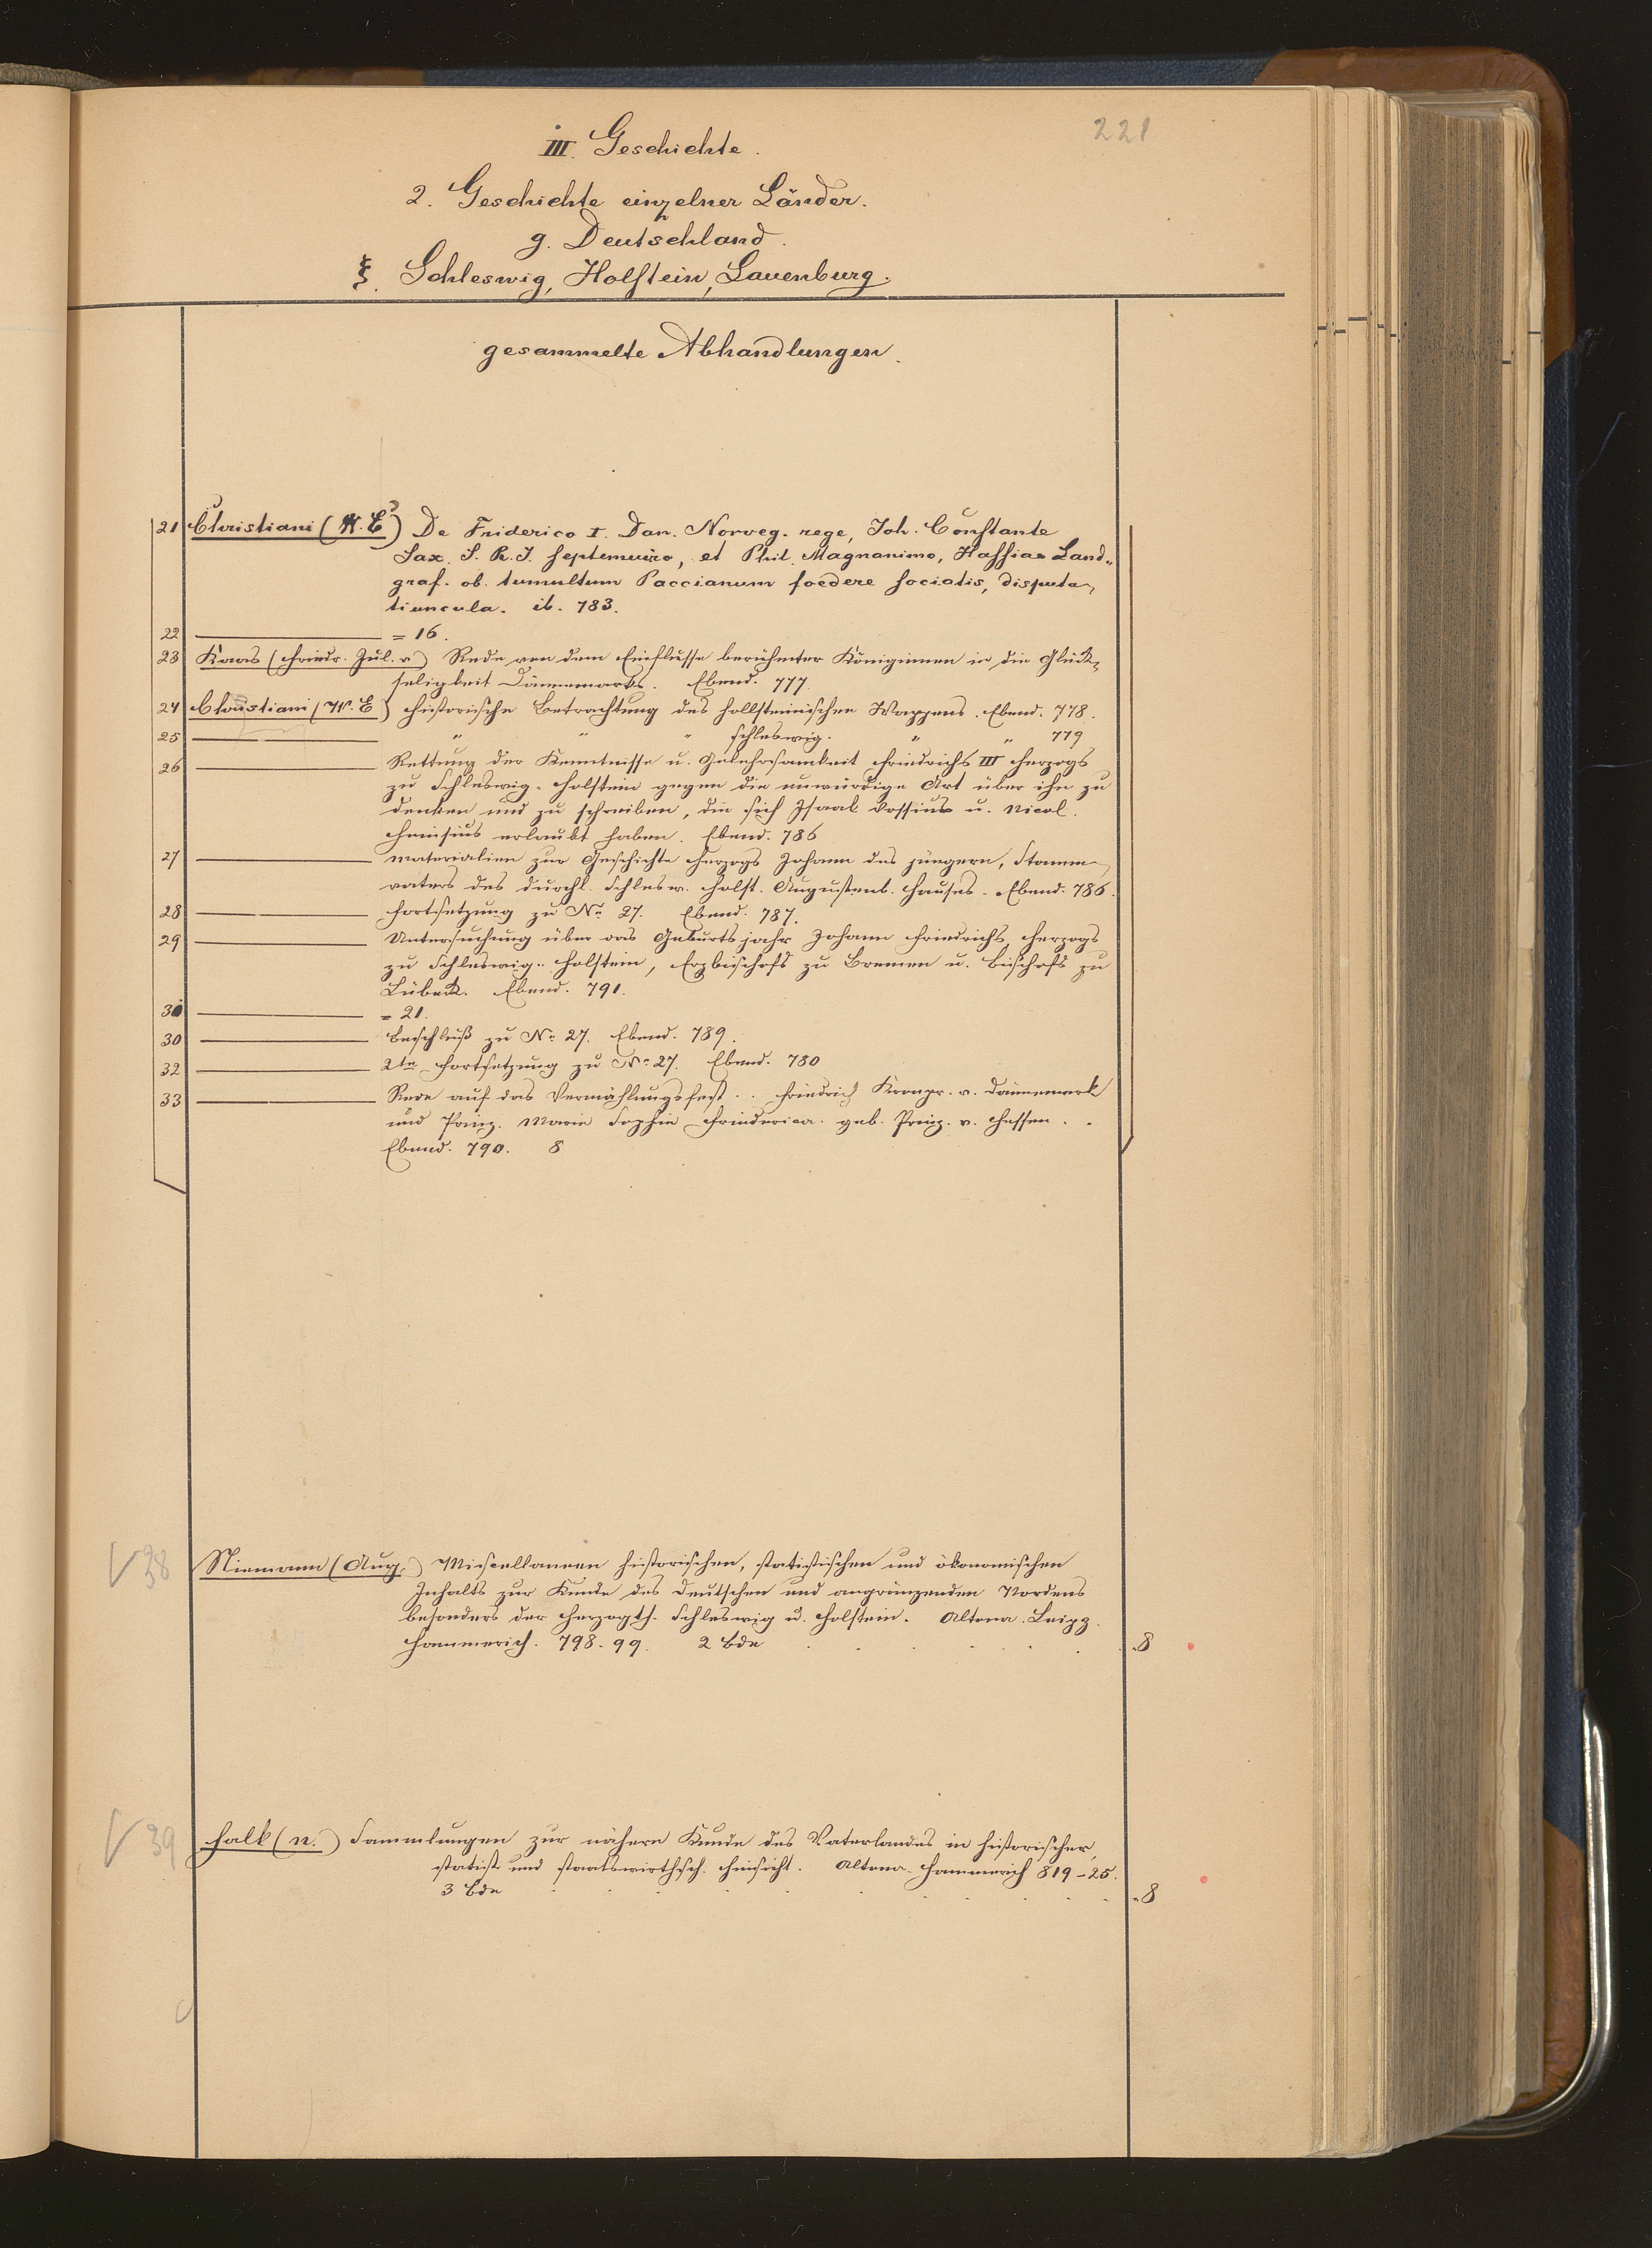 221
III. Geschichte.
2. Geschichte einzelner Länder.
g. Deutschland.
ξ. Schleswig, Holstein, Lauenburg.
gesammelte Abhandlungen.
21 Christiani (W. E) De Friderico I. Dan. Norveg. rege, Joh. Constante
Sax. S. R. I. septemuiro, et Phil. Magnanimo, Hassiae Land-
graf. ob. tumultum Paccianum foedere sociatis, disputa-
tiuncula. ib. 783.
22 ——— = 16.
23 Kaas (Friedr. Jul. v) Rede von dem Einflusse berühmter Königinnen in die Glück-
seligkeit Dännemarks. Ebend. 777.
24 Christiani (W. E) Historische Betrachtung des hollsteinischen Wappens. Ebend. 778.
25 ——— " " " schleswig. " " 779
26 ——— Rettung der Kenntnisse u. Gelehrsamkeit Friedrichs III Herzogs
zu Schleswig-Holstein gegen die unwürdige Art über ihn zu
denken und zu schreiben, die sich Isaak Vossius u. Nicol.
Heinsius erlaubt haben. Ebend. 786
27 ——— Materialien zur Geschichte Herzogs Johann des jüngern, Stamm-
vaters des durchl. Schlesw. Holst. Augustenb. Hauses. Ebend. 786.
28 ——— Fortsetzung zu No 27. Ebend. 787.
29 ——— Untersuchung über das Geburtsjahr Johann Friedrichs, Herzogs
zu Schleswig-Holstein, Erzbischofs zu Bremen u. Bischofs zu
Lübeck. Ebend. 791.
31 ——— = 21.
30 ——— Beschluß zu No 27. Ebend. 789.
32 ——— 2te Fortsetzung zu No 27. Ebend. 780
33 ——— Rede auf das Vermählungsfest . . Friedrich Kronpr. v. Dännemark
und Prinz. Marie Sophie Friederica. geb. Prinz. v. Hessen . .
Ebend. 790. 8
38 Niemann (Aug.) Miscellaneen historischen, statistischen und ökonomischen
Inhalts zur Kunde des deutschen und angränzenden Nordens
besonders der Herzogth. Schleswig u. Holstein. Altona. Leipz.
Hammerich. 798-99. 2 Bde . . . . . . 8
39 Falk (N.) Sammlungen zur nähern Kunde des Vaterlandes in historischer,
statist. und staatswirthsch. Hinsicht. Altona. Hammerich 819-25.
3 Bde . . . . . . . . . . 8